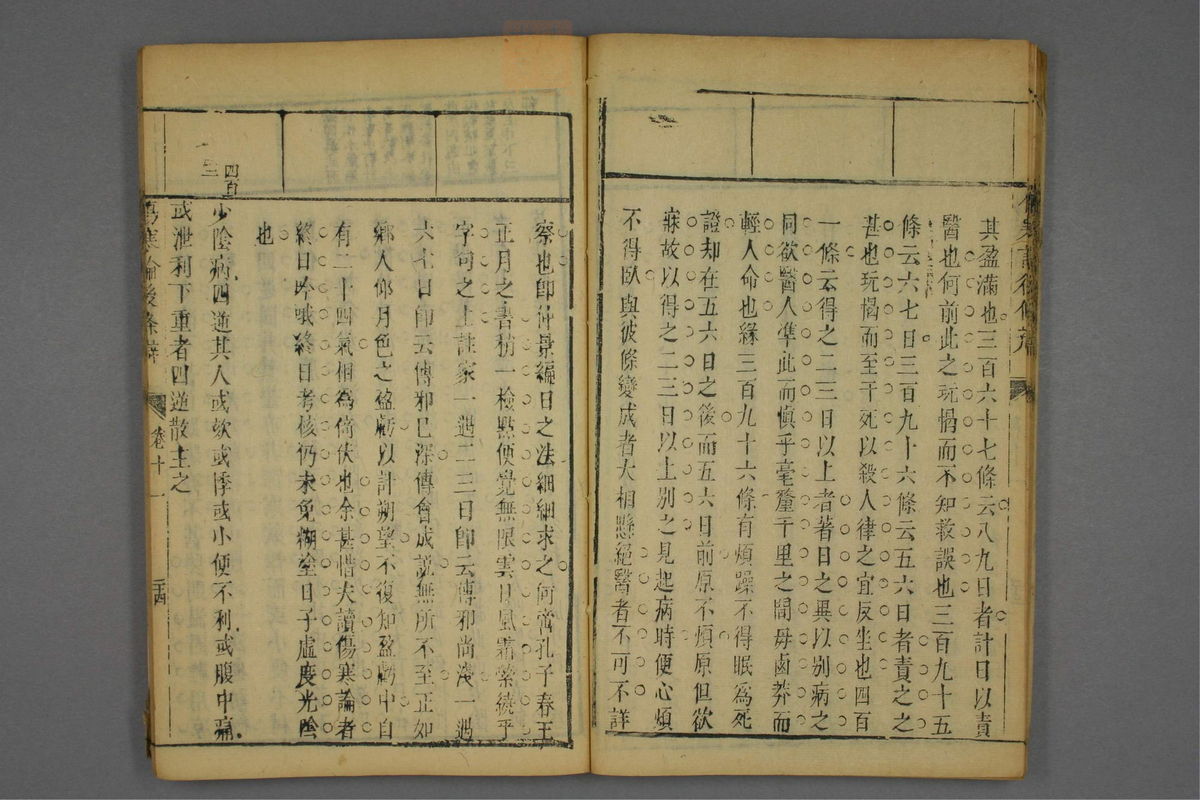 其盈滿也三百六十七條云八九日者計日以責
醫也何前此之玩愒而不知救誤也三百九十五
條云六七日三百九十六條云五六日者責之之
甚也玩愒而至于死以殺人律之宜反坐也四百
一條云得之二三日以上者著日之異以別病之
同欲醫人準此而愼乎毫釐千里之間毋鹵莽而
輕人命也緣三百九十六條有煩躁不得眠為死
證却在五六日之後而五六日前原不煩原但欲
寐故以得之二三日以上別之見起病時便心煩
不得臥與彼條變成者大相懸絕醫者不可不詳
察也卽仲景編日之法細細求之何啻孔子春王
正月之書稍一檢點便覺無限雲日風霜縈繞乎
字句之上註家一遇二三日卽云傳邪尚淺一遇
六七日卽云傳邪已深傳會成謊無所不至正如
鄉人仰月色之盈虧以計朔望不復知盈虧中自
有二十四氣相為倚伏也余甚惜夫讀傷寒論者
終日吟哦終日考核仍未免糊塗日子虛度光陰
也
四百
三
少陰病四逆其人或欬或悸或小便不利或腹中痛
或泄利下重者四逆散主之
傷寒論後條辨
卷十一